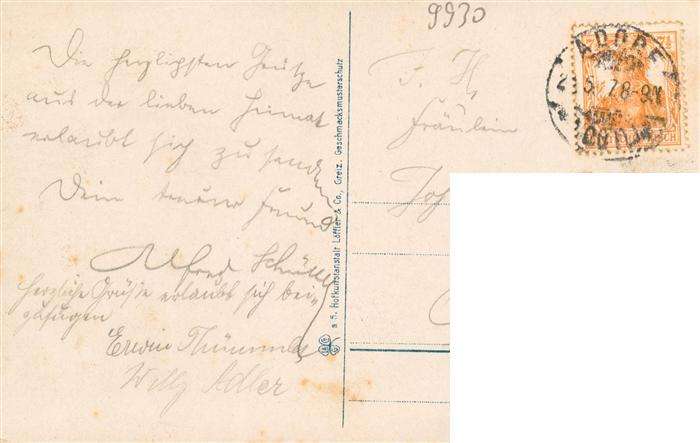 Die herzlichsten Grüße
aus der lieben Heimat
erlaubt sich zu senden
Dein treuer Freund
Alfred
herzliche Grüße erlaubt sich bei-
zufügen
Erwin Thümmler
Willy Adler
a h. Hofkunstanstalt Löffler & Co., Greiz. Geschmacksmusterschutz
9930
F. H.
Fräulein
ADORF